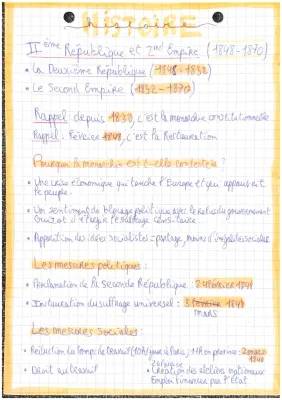 HISTOIRE
IIème République et 2nd Empire (1848-1870)
• La Deuxième République (1848-1852)
• Le Second Empire (1852-1870)
Rappel depuis 1830, c'est la monarchie constitutionnelle
Rappel. Février 1848, c'est la Restauration
Pourquoi la monarchie est-elle contestée ?
• Une crise économique qui touche l'Europe et qui appauvrit
le peuple.
• Un sentiment de blocage politique avec le refus du gouvernement
d'élargir le suffrage censitaire
• Apparition des idées socialistes : partage, moins d'inégalités sociales
Les mesures politiques :
• Proclamation de la Seconde République : 24 février 1848
• Instauration du suffrage universel : 5 février 1848
mars
Les mesures sociales :
• Réduction du temps de travail (10h/jour à Paris, 11h en province : 2 mars
1848
• Droit au travail
• Création des ateliers nationaux
Emploi fournis par l'État